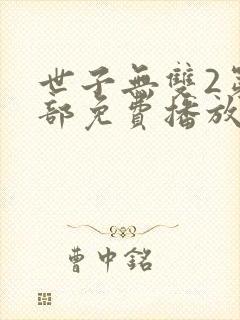 世子無雙2第
部免費播放
曹中銘